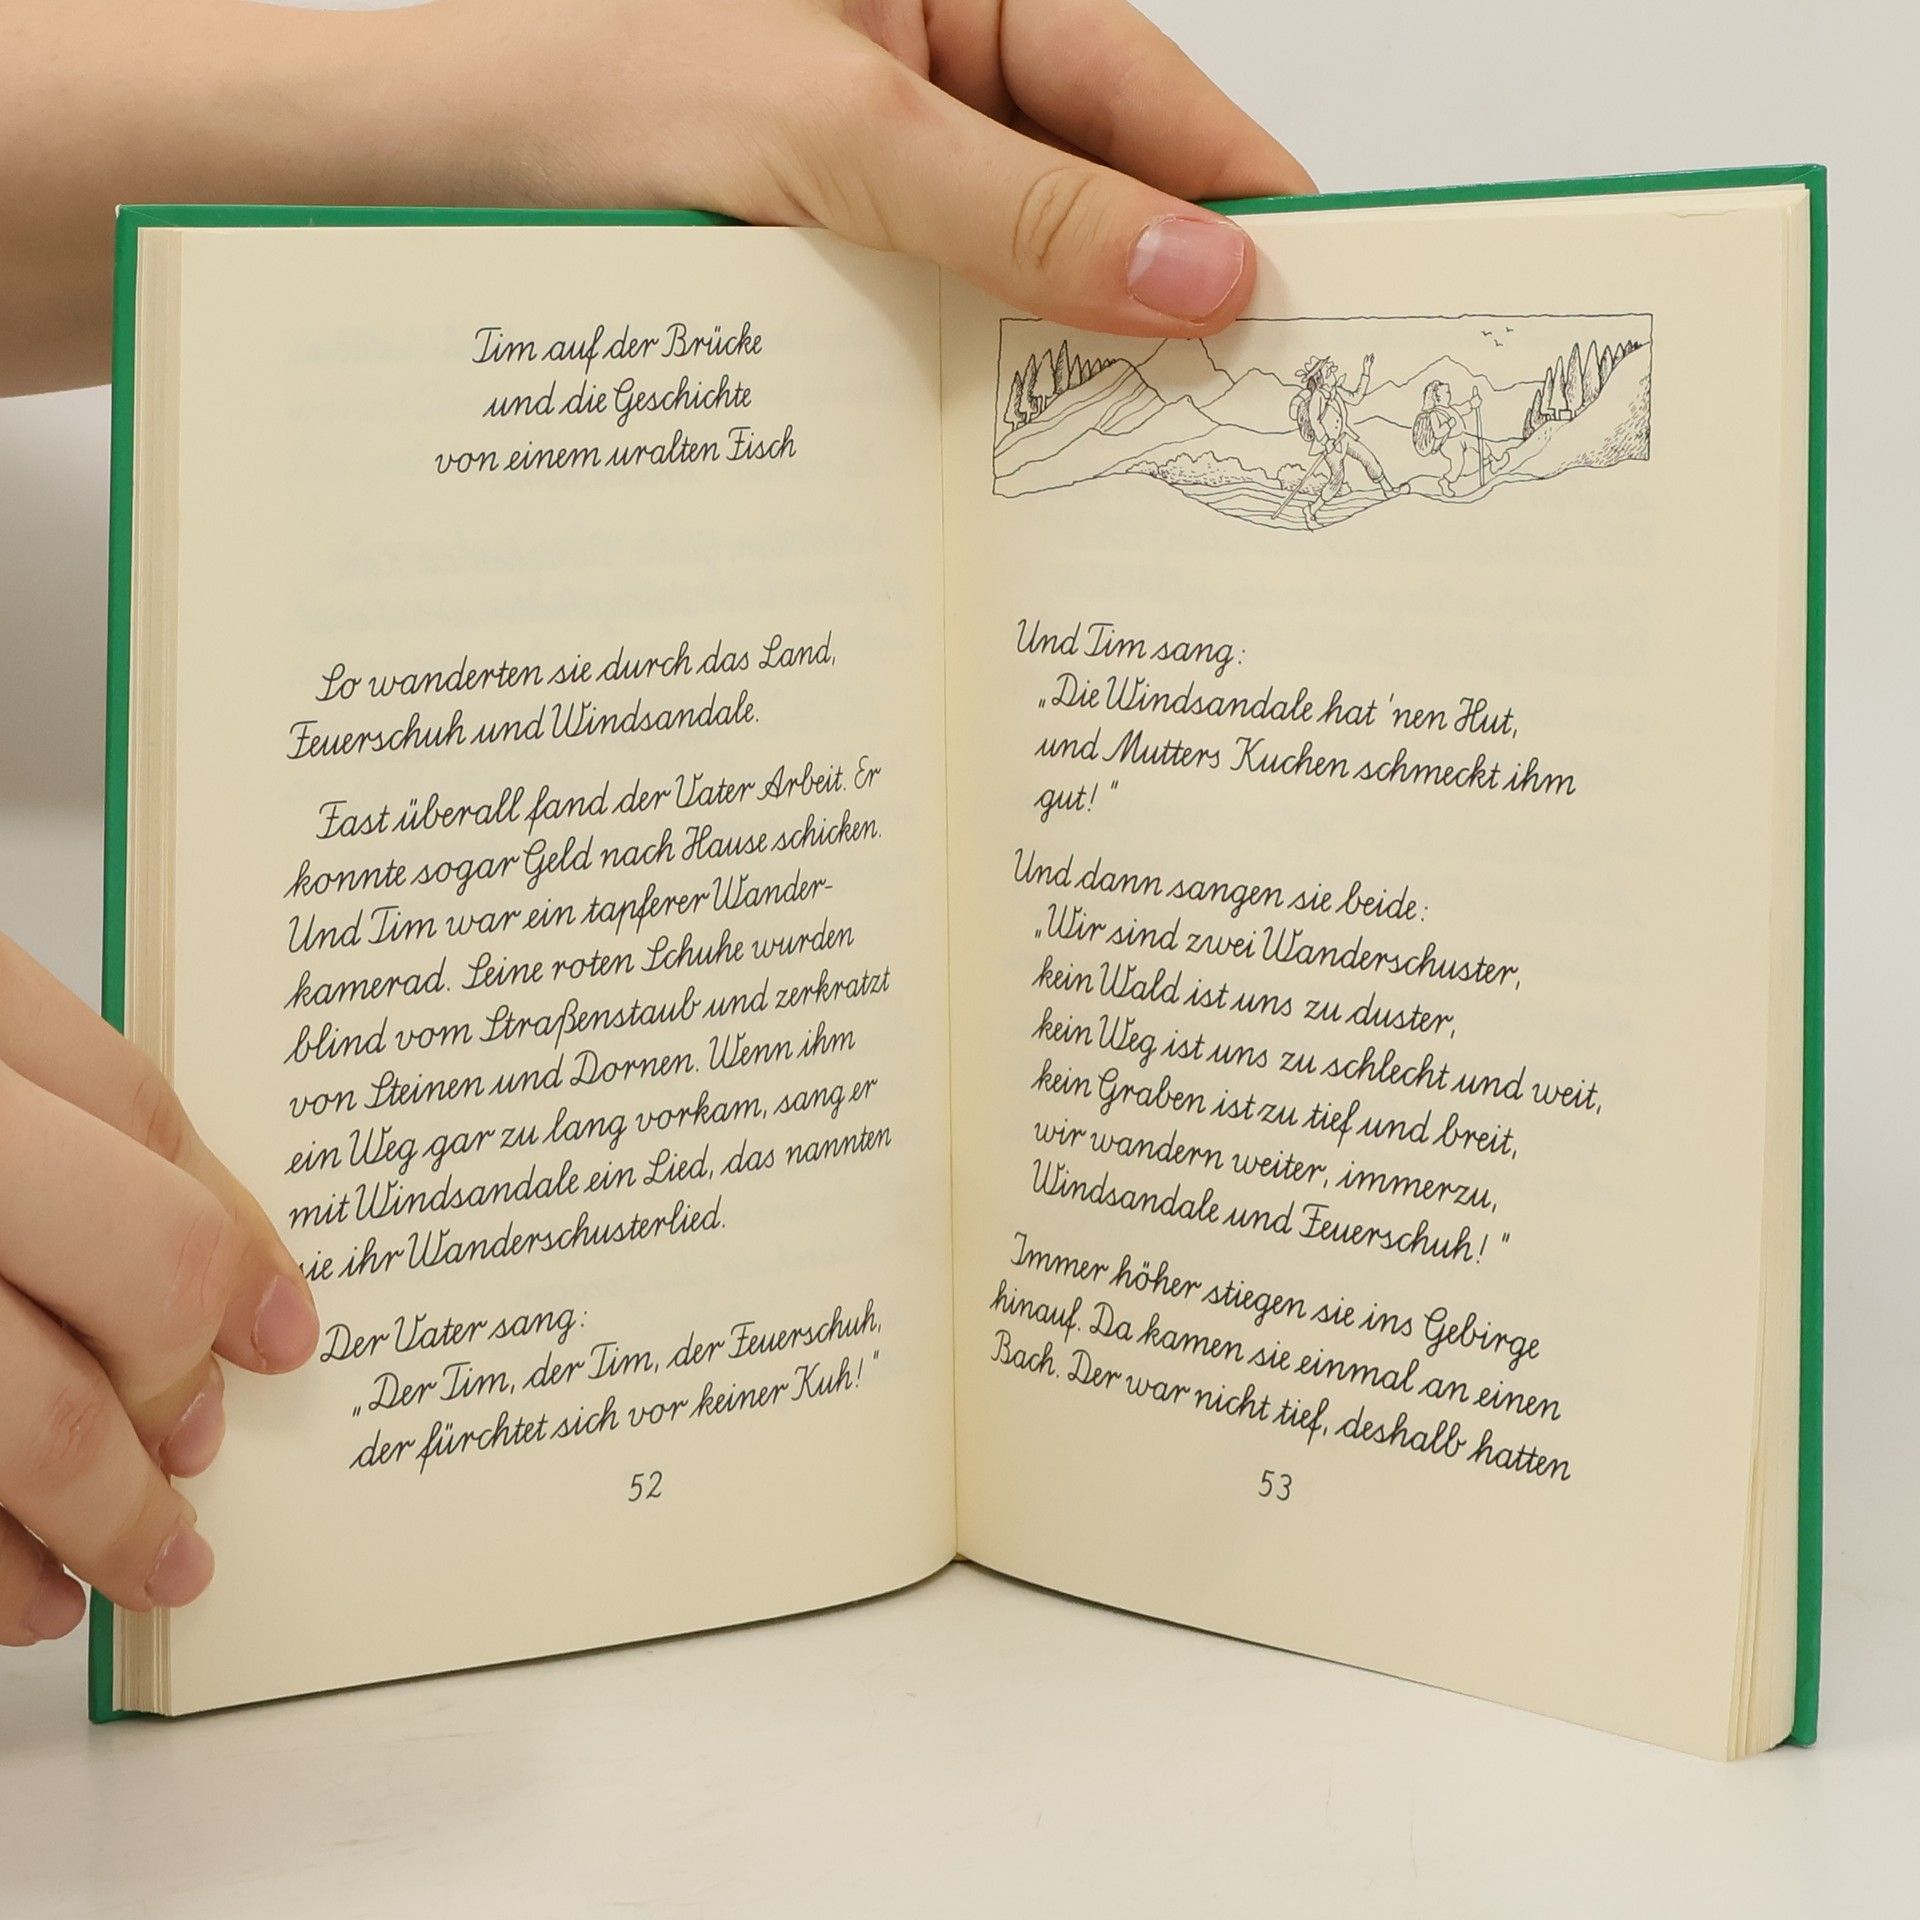 Tim auf der Brücke
und die Geschichte
von einem uralten Fisch
So wanderten sie durch das Land,
Feuerschuh und Windsandale.
Fast überall fand der Vater Arbeit. Er
konnte sogar Geld nach Hause schicken.
Und Tim war ein tapferer Wander-
kamerad. Seine roten Schuhe wurden
blind vom Straßenstaub und zerkratzt
von Steinen und Dornen. Wenn ihm
ein Weg gar zu lang vorkam, sang er
mit Windsandale ein Lied, das nannten
sie ihr Wanderschusterlied.
Der Vater sang:
„Der Tim, der Tim, der Feuerschuh,
der fürchtet sich vor keiner Kuh!"
52
Und Tim sang:
„Die Windsandale hat 'nen Hut,
und Mutters Kuchen schmeckt ihm
gut!"
Und dann sangen sie beide:
„Wir sind zwei Wanderschuster,
kein Wald ist uns zu duster,
kein Weg ist uns zu schlecht und weit,
kein Graben ist zu tief und breit,
wir wandern weiter, immerzu,
Windsandale und Feuerschuh!"
Immer höher stiegen sie ins Gebirge
hinauf. Da kamen sie einmal an einen
Bach. Der war nicht tief, deshalb hatten
53